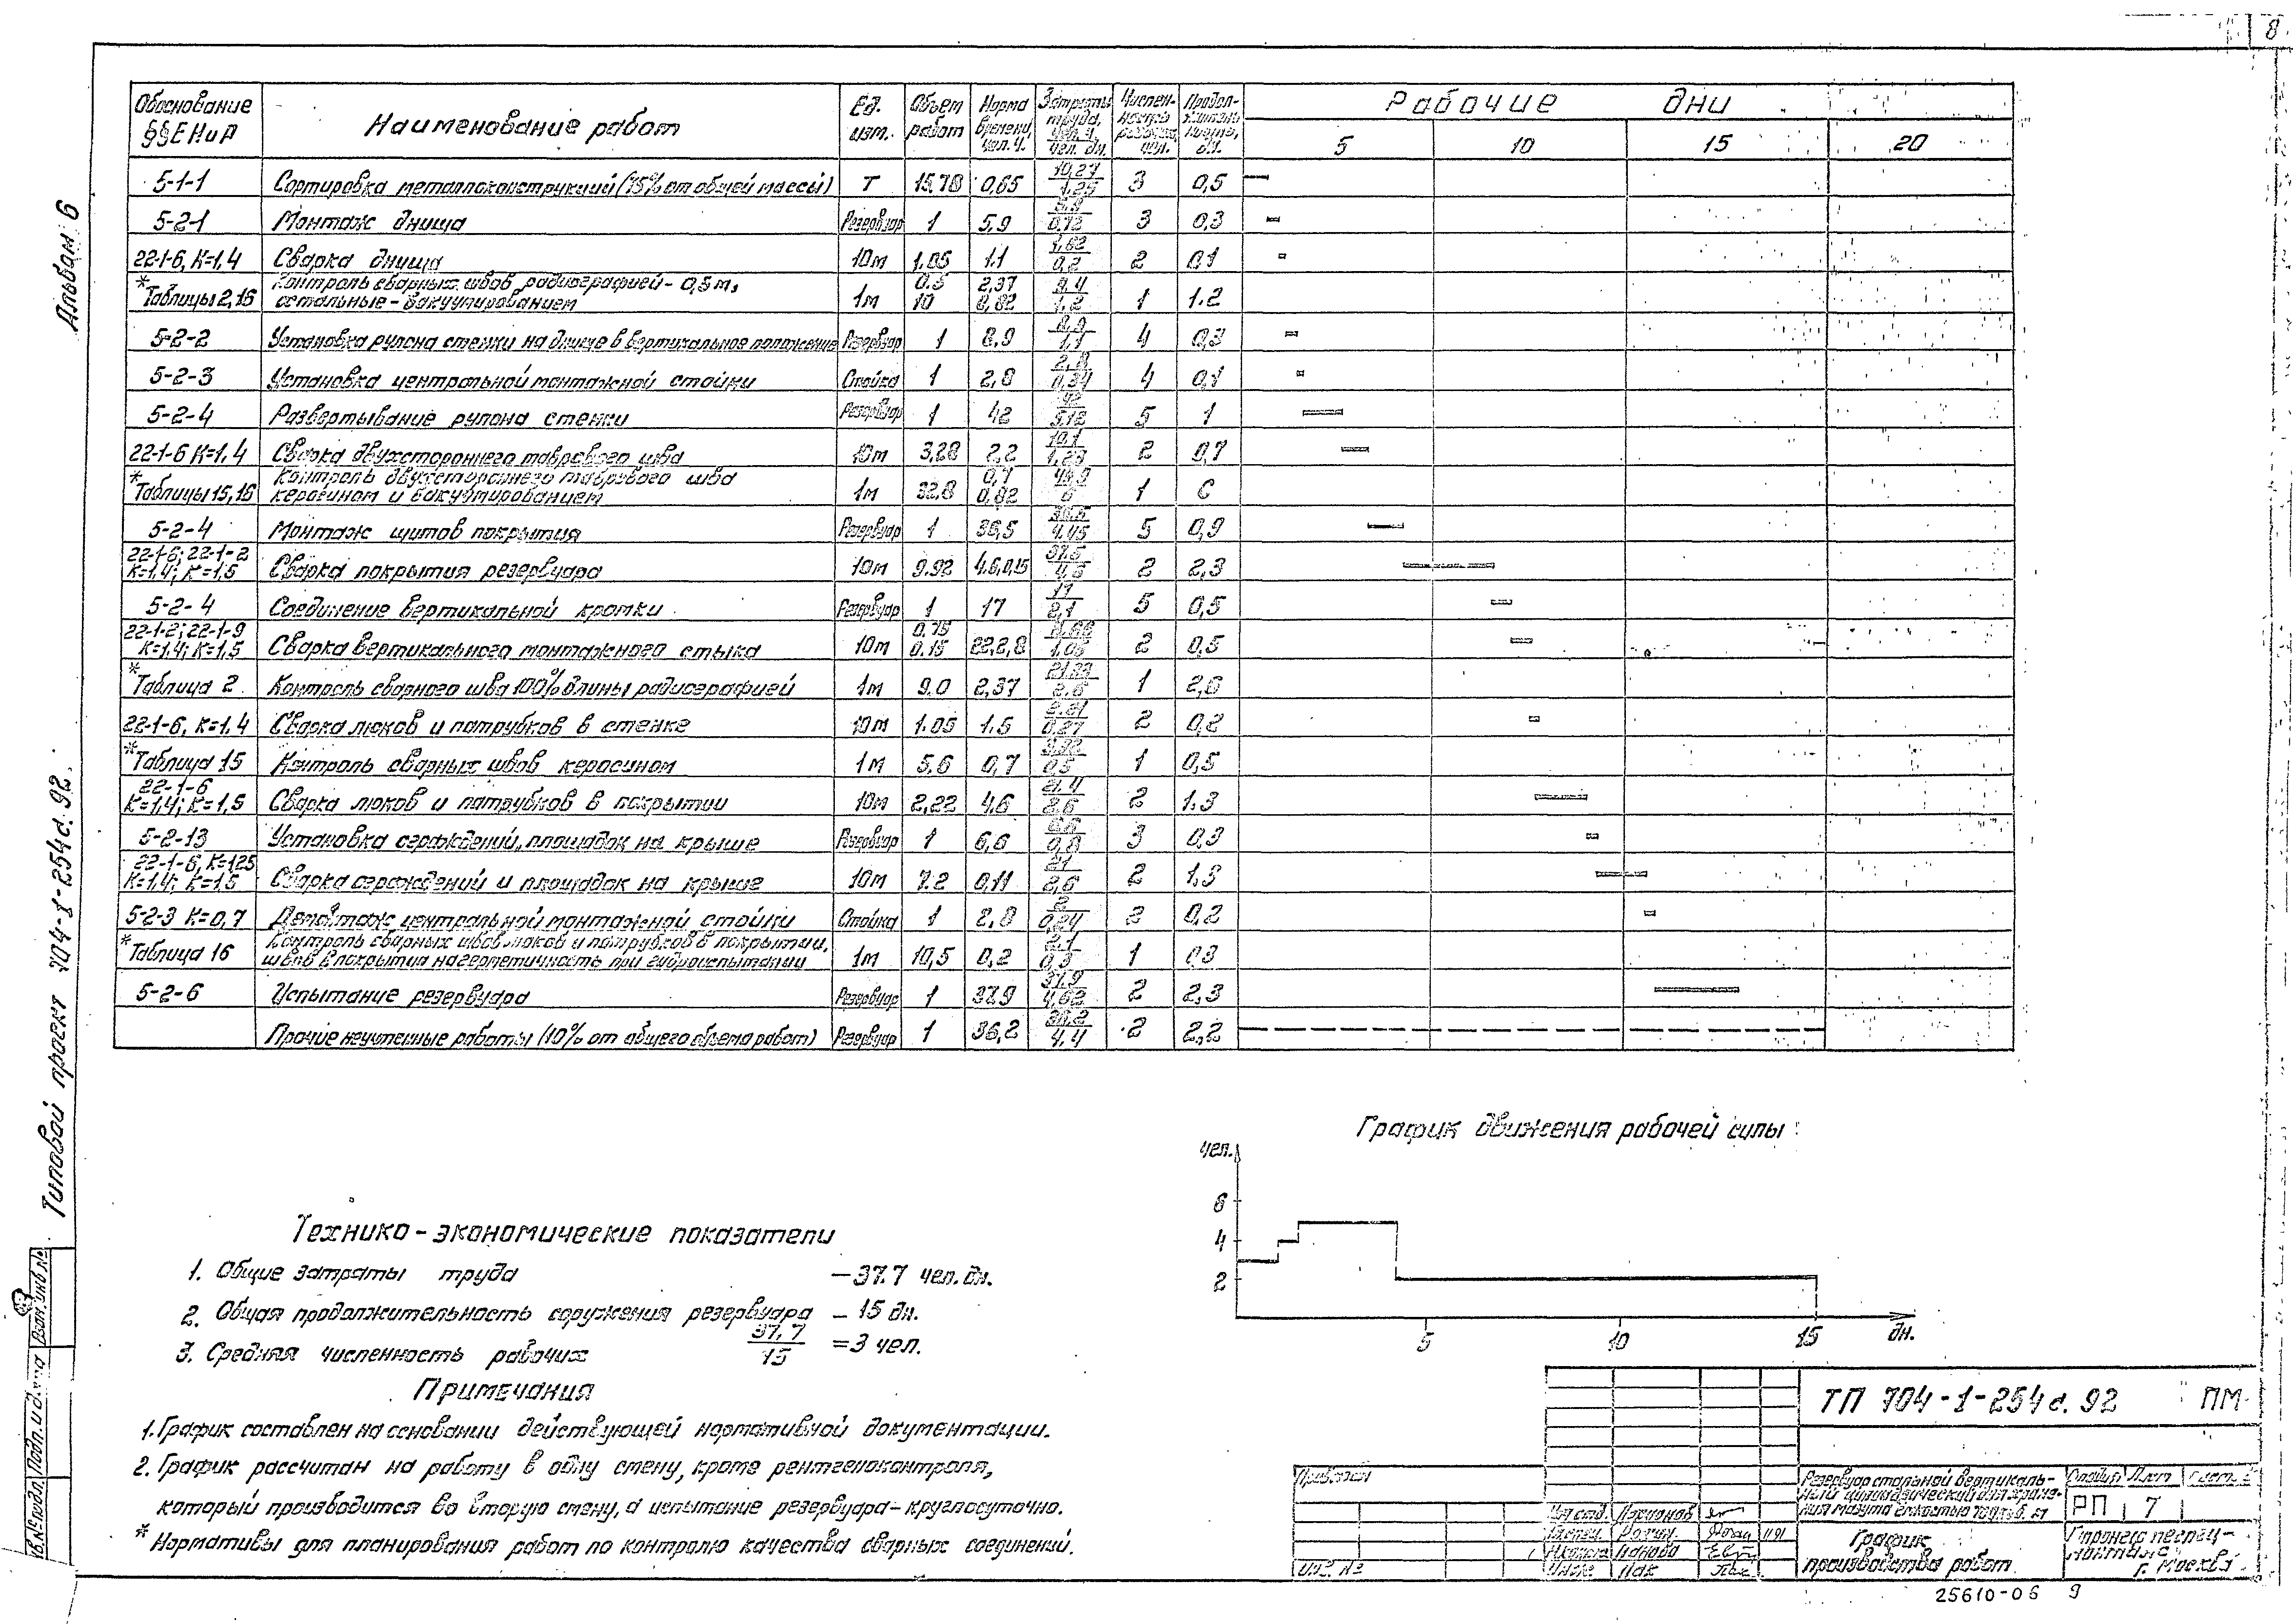 8
Альбом 6
Типовой проект 704-1-254с.92.
Обоснование §§ЕНиР
Наименование работ
Ед. изм.
Объем работ
Норма времени, чел.ч.
Затраты труда, чел.ч. чел. дн.
Числен-ность рабочих, чел.
Продол-житель-ность, дн.
Рабочие дни
5 10 15 20
5-1-1 Сортировка металлоконструкций (75% от общей массы) Т 15,78 0,65 10,27 1,25 3 0,5
5-2-1 Монтаж днища Резервуар 1 5,9 5,9 0,72 3 0,3
22-1-6, К=1,4 Сварка днища 10м 1.05 1.1 1,62 0,2 2 0,1
*Таблицы 2,16 Контроль сварных швов радиографией - 0,5 м,
остальные - вакуумированием 1м 0.5 10 2,37 0,82 9.4 1,2 1 1.2
5-2-2 Установка рулона стенки на днище в вертикальное положение Резервуар 1 8,9 8,9 1,1 4 0,3
5-2-3 Установка центральной монтажной стойки Стойка 1 2,8 2,8 0,34 4 0,1
5-2-4 Развертывание рулона стенки Резервуар 1 42 42 5,12 5 1
22-1-6 К=1,4 Сварка двухстороннего таврового шва 10м 3,28 2,2 10,1 1,23 2 0,7
*Таблицы 15,16 Контроль двухстороннего таврового шва
керосином и вакуумированием 1м 32,8 0,7 0,82 6 1
5-2-4 Монтаж щитов покрытия Резервуар 1 36,5 36,5 4,45 5 0,9
22-1-6; 22-1-2 К=1,4; К=1,5 Сварка покрытия резервуара 10м 9.92 4.6,0,15 37.5 4,6 2 2,3
5-2-4 Соединение вертикальной кромки Резервуар 1 17 17 2,1 5 0,5
22-1-2; 22-1-9 К=1,4; К=1,5 Сварка вертикального монтажного стыка 10м 0,75 0.15 22,2,8 1,05 2 0,5
*Таблица 2 Контроль сварного шва 100% длины радиографией 1м 9.0 2,37 21.33 2.6 1 2,6
22-1-6, К=1.4 Сварка люков и патрубков в стенке 10м 1.05 1.5 2.21 0,27 2 0,2
*Таблица 15 Контроль сварных швов керосином 1м 5.6 0,7 3,92 0,5 1 0,5
22-1-6 К=1,4; К=1,5 Сварка люков и патрубков в покрытии 10м 2,22 4.6 21.4 2.6 2 1.3
5-2-13 Установка ограждений, площадок на крыше Резервуар 1 6,6 6,6 0,8 3 0,3
22-1-6, К=1,25 К=1,4; К=1.5 Сварка ограждений и площадок на крыше 10м 7.2 0,11 21 2,6 2 1.3
5-2-3 К=0,7 Демонтаж центральной монтажной стойки Стойка 1 2,8 2 0,24 2 0,2
*Таблица 16 Контроль сварных швов люков и патрубков в покрытии,
швов в покрытии на герметичность при гидроиспытании 1м 10,5 0,2 2,1 0,3 1 0,3
5-2-6 Испытание резервуара Резервуар 1 37.9 37,9 4,62 2 2,3
Прочие неучтенные работы (10% от общего объема работ) Резервуар 1 36,2 36,2 4.4 2 2,2
График движения рабочей силы
чел.
6
4
2
5 10 15 дн.
Технико-экономические показатели
1. Общие затраты труда – 37.7 чел.дн.
2. Общая продолжительность сооружения резервуара – 15 дн.
3. Средняя численность рабочих 37,7 15 = 3 чел.
Примечания
1. График составлен на основании действующей нормативной документации.
2. График рассчитан на работу в одну смену, кроме рентгеноконтроля,
который производится во вторую смену, а испытание резервуара - круглосуточно.
* Нормативы для планирования работ по контролю качества сварных соединений.
Взам. инв №
Подп. и дата
Инв.№ подл.
ТП 704-1-254с.92 ПМ
Привязан
Инв. №
Резервуар стальной вертикаль-
ный цилиндрический для хране-
ния мазута емкостью
Стадия Лист
РП 7
График
производства работ
г. Москва
25610-06 9